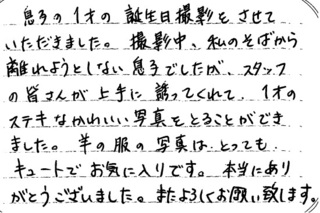 息子の1才の誕生日撮影をさせて
いただきました。撮影中、私のそばから
離れようとしない息子でしたが、スタッフ
の皆さんが上手に誘ってくれて、1才の
ステキなかわいい写真をとることができ
ました。羊の服の写真は、とっても
キュートでお気に入りです。本当にあり
がとうございました。またよろしくお願い致します。